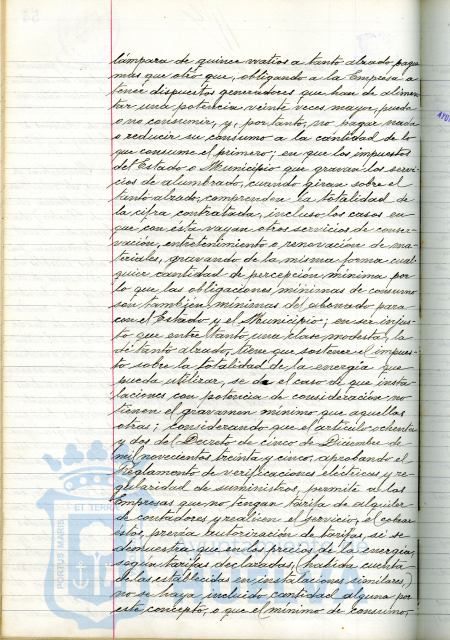 lámpara de quince watios a tanto alzado pague
mas que otro que, obligando a la Empresa a
tener dispuestos generadores que han de alimen-
tar una potencia veinte veces mayor, pueda
o no consumir, y, por tanto, no pague nada
o reducir su consumo a la cantidad de lo
que consume el primero; en que los impuestos
del Estado o Municipio que gravan los servi-
cios de alumbrado, cuando giran sobre el
tanto alzado, comprenden la totalidad de
la cifra contratada, incluso los casos en
que con ésta vayan otros servicios de conser-
vación, entretenimiento o renovación de ma-
teriales, gravando de la misma forma cual-
quier cantidad de percepción mínima por
lo que las obligaciones mínimas de consumo
son tambien mínimas del abonado para
con el Estado y el Municipio; en ser injus-
to que entre tanto una clase modesta, la
de tanto alzado, tiene que sostener el impues-
to sobre la totalidad de la energía que
pueda utilizar, se de el caso de que insta-
laciones con potencia de consideración no
tienen el gravamen mínimo que aquellas
otras; considerando que el artículo ochenta
y dos del Decreto de cinco de Diciembre de
mil novecientos treinta y cinco, aprobando el
Reglamento de verificaciones eléctricas y re-
gularidad de suministros, permite a las
Empresas que no tengan tarifa de alquiler
de contadores y realicen el servicio, el cobrar
éste, previa autorización de tarifas, si se
demuestra que en los precios de la energía,
según tarifas declaradas, (habida cuenta
de las establecidas en instalaciones similares)
no se haya incluido cantidad alguna por
este concepto, o que el mínimo de consumo,
PORTUS MARIS
ET TERR
Ayuntamiento de